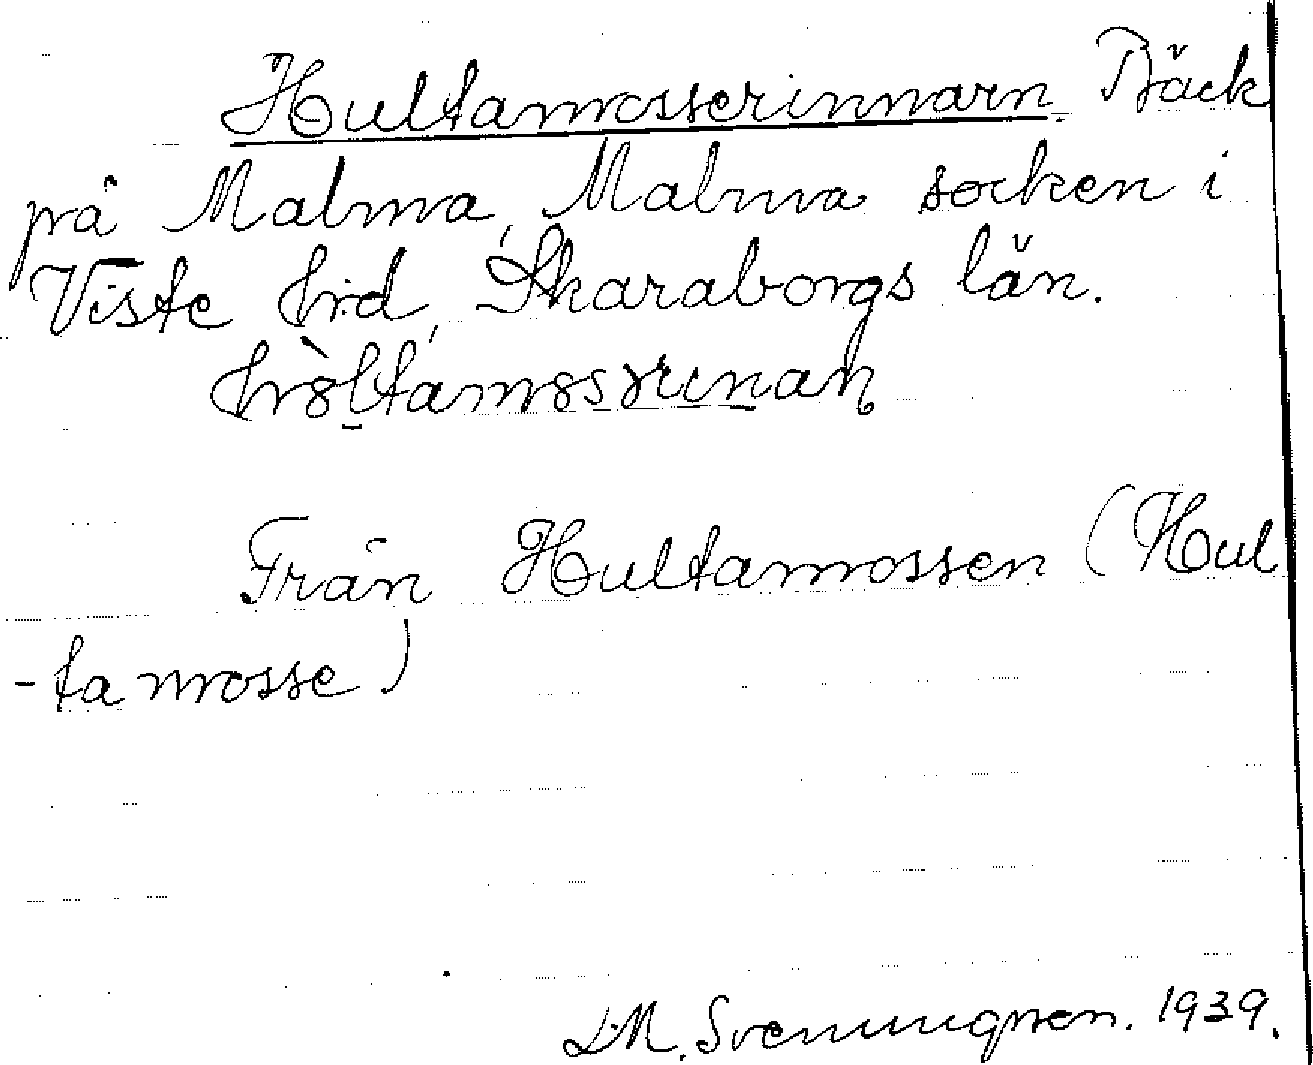 Hultamosserinnarn Bäck
på Malma, Malma socken i
Viste hrd, Skaraborgs län.
hòltamossrinaɳ
Från Hultamossen (Hul
-tamosse)
S.M. Svenungsson. 1939.